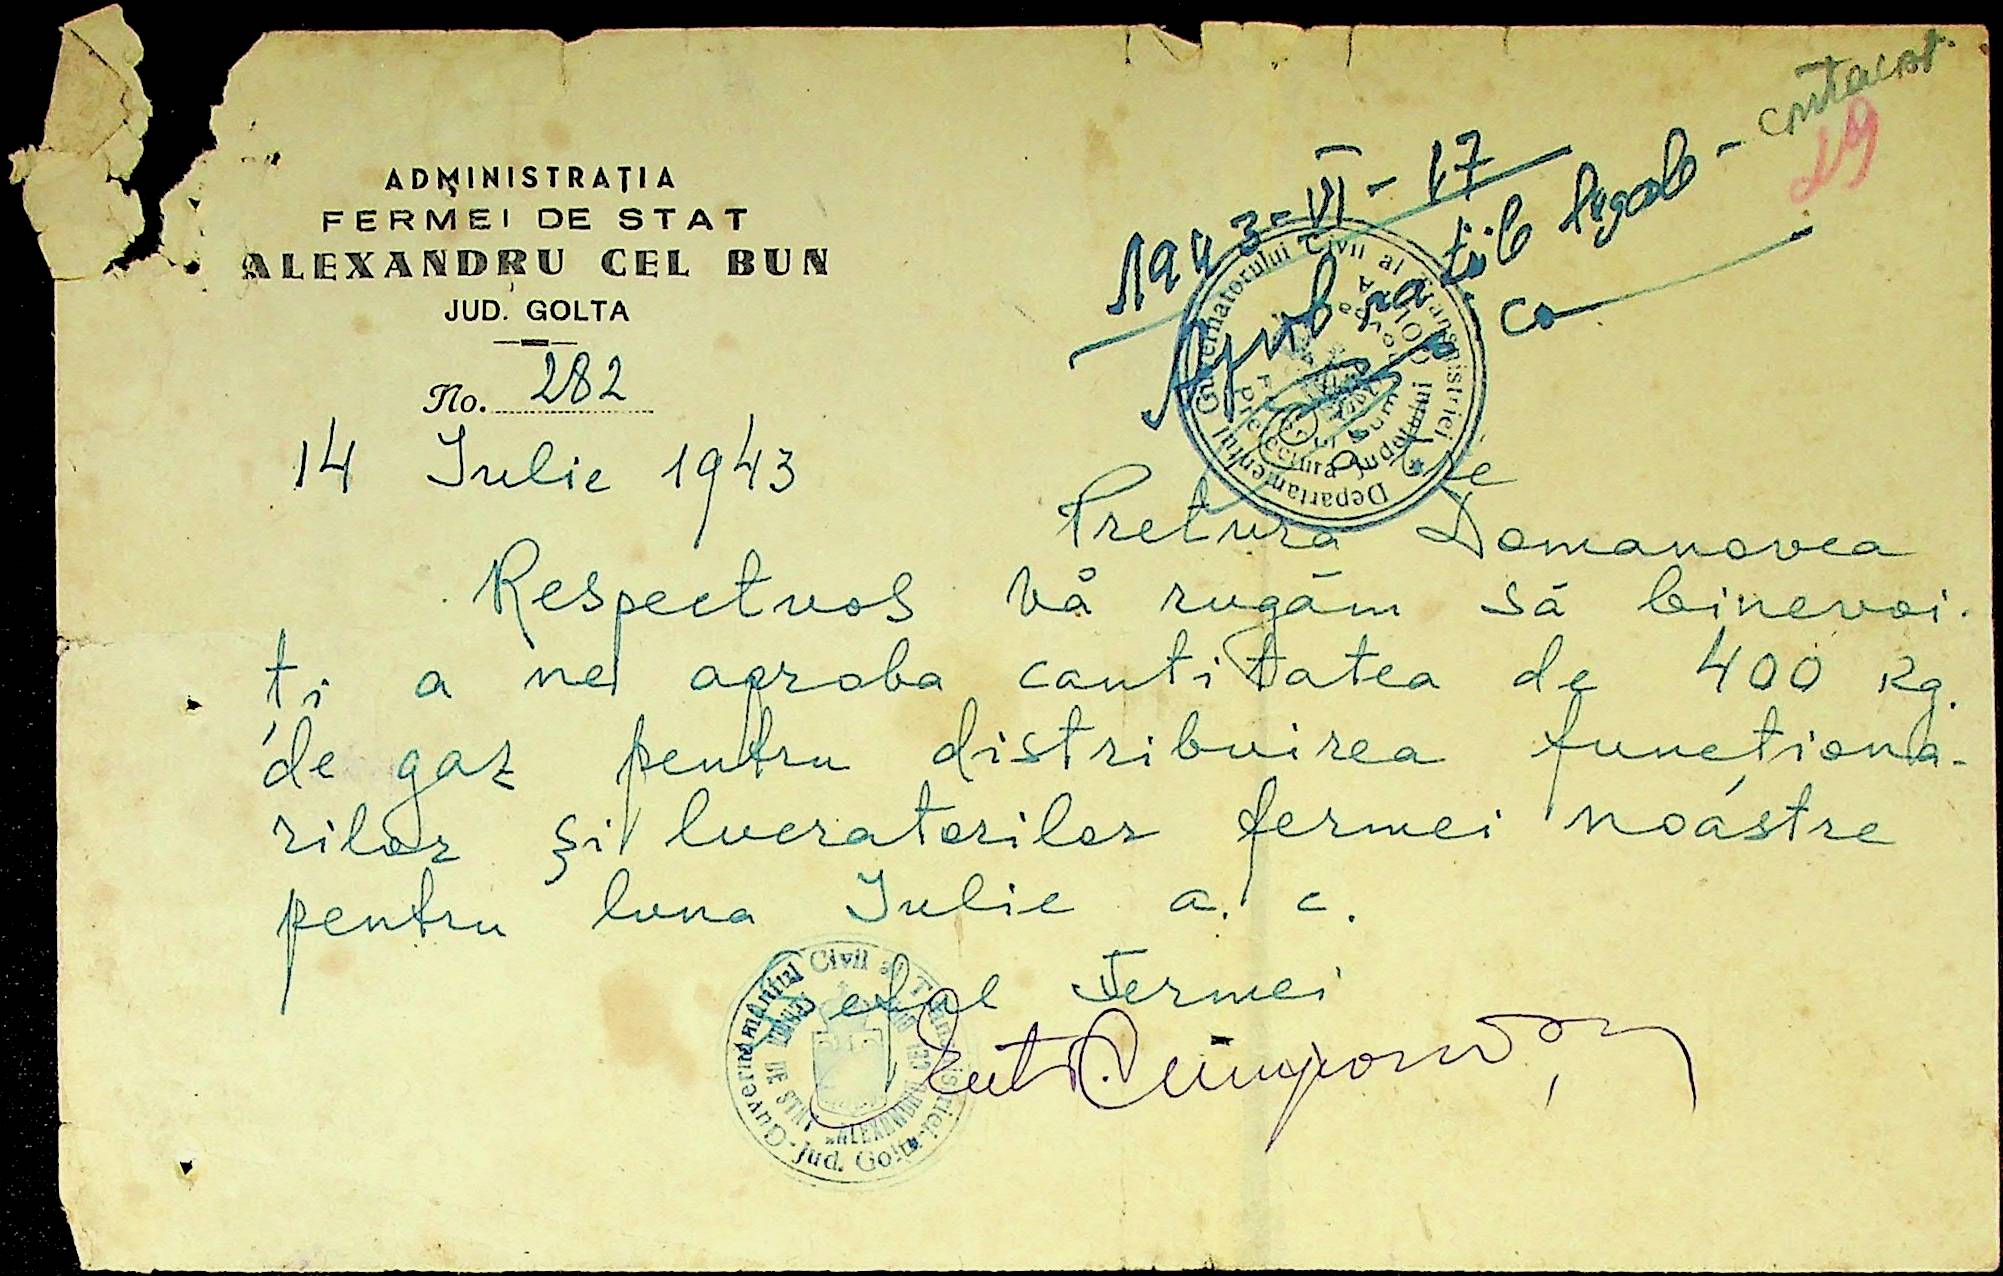 ADMINISTRAȚIA
FERMEI DE STAT
ALEXANDRU CEL BUN
JUD. GOLTA
No. 282
14 Iulie 1943
1943-VI-17
29
Guvernatorului Civil al Transnistriei
Departamentul
Prefectura Județului Golta
Către
Pretura Domanovca
Respectuos vă rugăm să binevoi-
ți a ne aproba cantitatea de 400 kg.
de gaz pentru distribuirea funcționa-
rilor și lucratorilor fermei noastre
pentru luna Iulie a. c.
Șeful Fermei
Guvernămîntul Civil al Transnistriei
Jud. Golta
DE STAT „ALEXANDRU CEL BUN